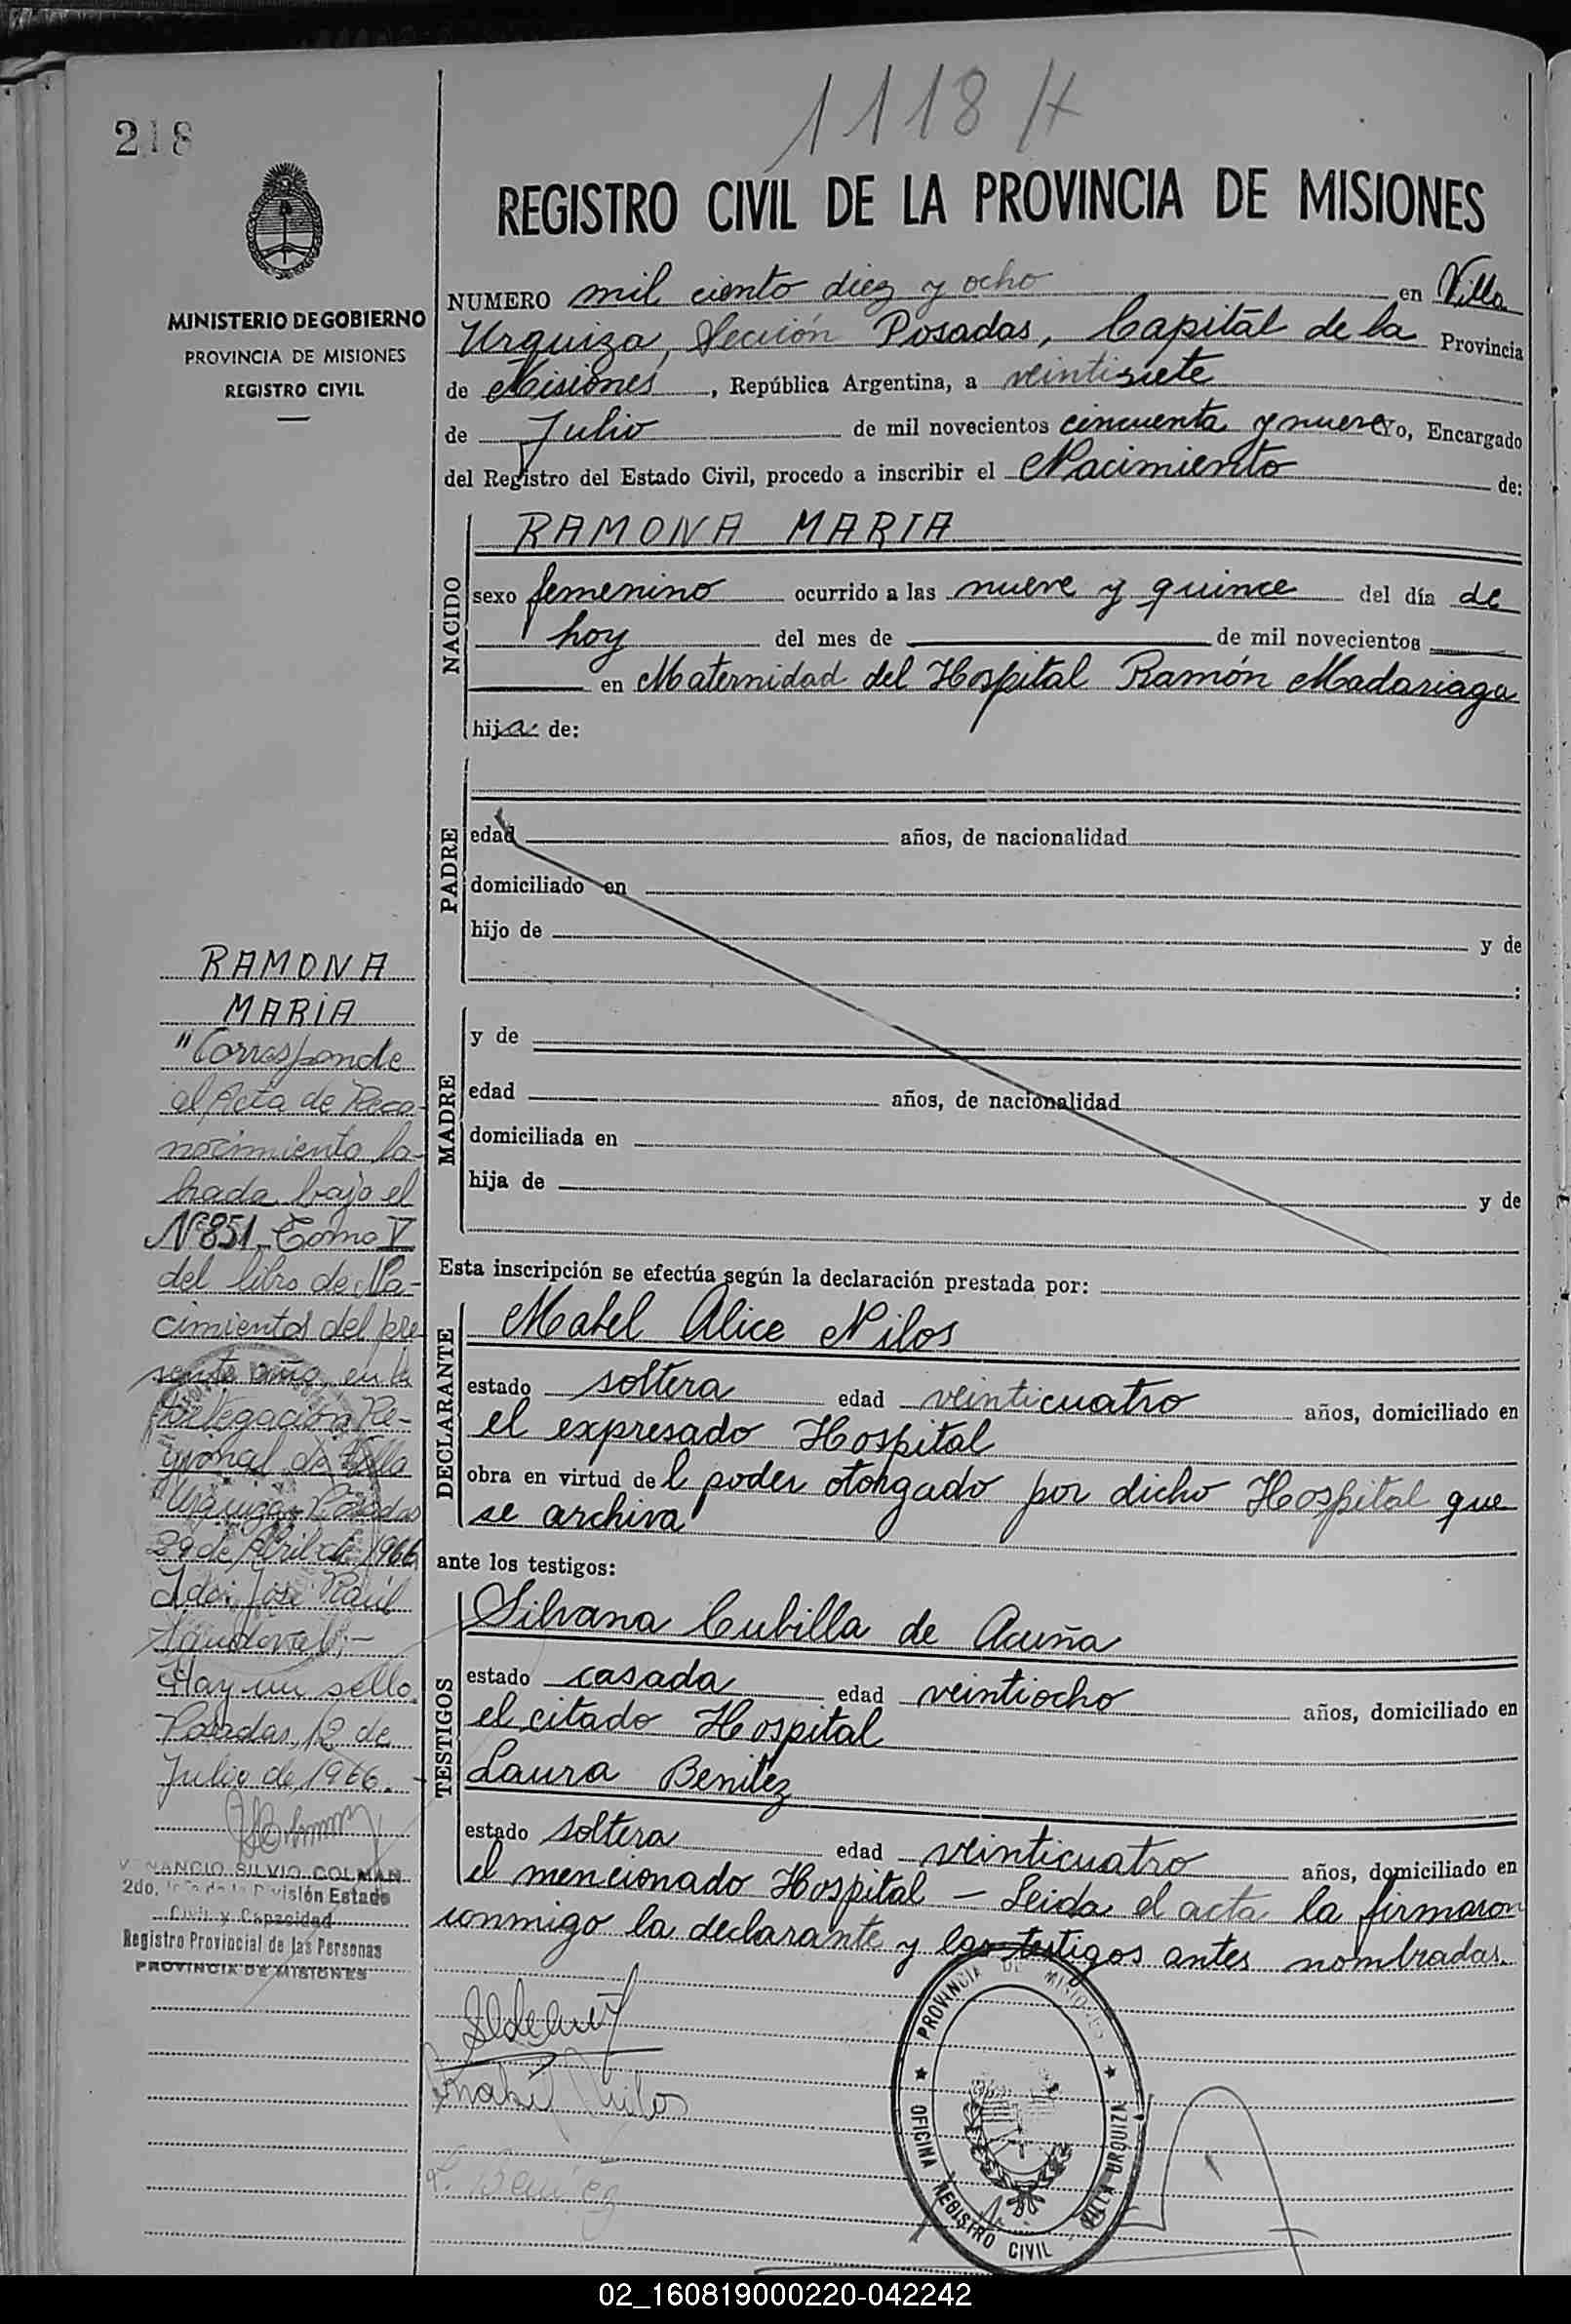 218
1118 H
MINISTERIO DE GOBIERNO
PROVINCIA DE MISIONES
REGISTRO CIVIL
REGISTRO CIVIL DE LA PROVINCIA DE MISIONES
NUMERO mil ciento diez y ocho en Villa
Urquiza, Sección Posadas, Capital de la Provincia
de Misiones, República Argentina, a veintisiete
de Julio de mil novecientos cincuenta y nueve Yo, Encargado
del Registro del Estado Civil, procedo a inscribir el Nacimiento de:
NACIDO
RAMONA MARIA
sexo femenino ocurrido a las nueve y quince del día de
hoy del mes de de mil novecientos
en Maternidad del Hospital Ramón Madariaga
hija de:
PADRE
edad años, de nacionalidad
domiciliado en
hijo de y de
:
MADRE
y de
edad años, de nacionalidad
domiciliada en
hija de y de
Esta inscripción se efectúa según la declaración prestada por:
DECLARANTE
Mabel Alice Nilos
estado soltera edad veinticuatro años, domiciliado en
el expresado Hospital
obra en virtud del poder otorgado por dicho Hospital que
se archiva
ante los testigos:
TESTIGOS
Silvana Cubilla de Acuña
estado casada edad veintiocho años, domiciliado en
el citado Hospital
Laura Benitez
estado soltera edad veinticuatro años, domiciliado en
el mencionado Hospital – Leida el acta la firmaron
conmigo la declarante y las testigos antes nombradas.
RAMONA
MARIA
"Corresponde
al Acta de Reco-
nocimiento la-
brada bajo el
Nº 851, Tomo V
del libro de Na-
cimientos del pre
sente año, en la
Delegación Re-
gional de Villa
Urquiza Posadas
29 de Abril de 1966
Fdo: José Raúl
Sandoval;–
Hay un sello.
Posadas, 12 de
Julio de 1966.
VENANCIO SILVIO COLMAN
2do. Jefe de la División Estado
Civil y Capacidad
Registro Provincial de las Personas
PROVINCIA DE MISIONES
Mabel Nilos
L. Benitez
PROVINCIA DE MISIONES
OFICINA REGISTRO CIVIL VILLA URQUIZA
02_160819000220-042242